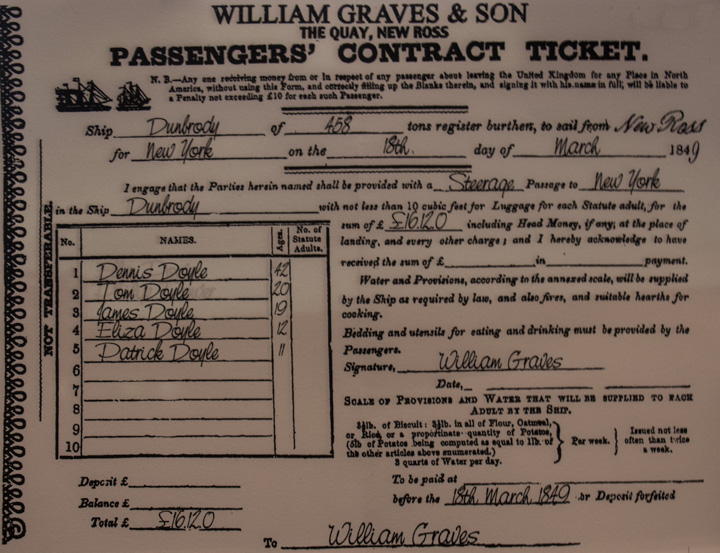 WILLIAM GRAVES & SON
THE QUAY, NEW ROSS
PASSENGERS' CONTRACT TICKET.
N. B.—Any one receiving money from or in respect of any passenger about leaving the United Kingdom for any Place in North
America, without using this Form, and correctly filling up the Blanks therein, and signing it with his name in full, will be liable to
a Penalty not exceeding £10 for each such Passenger.
Ship Dunbrody of 458 tons register burthen, to sail from New Ross
for New York on the 18th. day of March 1849
I engage that the Parties herein named shall be provided with a Steerage Passage to New York
in the Ship Dunbrody with not less than 10 cubic feet for Luggage for each Statute adult, for the
sum of £ £16.12.0 including Head Money, if any, at the place of
landing, and every other charge; and I hereby acknowledge to have
received the sum of £ in payment.
Water and Provisions, according to the annexed scale, will be supplied
by the Ship as required by law, and also fires, and suitable hearths for
cooking.
Bedding and utensils for eating and drinking must be provided by the
Passengers.
Signature, William Graves
Date,
SCALE OF PROVISIONS AND WATER THAT WILL BE SUPPLIED TO EACH
ADULT BY THE SHIP.
lb. of Biscuit: lb. in all of Flour, Oatmeal,
or Rice, or a proportionate quantity of Potatos,
(5lb of Potatos being computed as equal to 1lb. of
the other articles above enumerated.)
3 quarts of Water per day.
Per week.
Issued not less
often than twice
a week.
To be paid at
before the 18th. March, 1849 or Deposit forfeited
NOT TRANSFERABLE.
No. NAMES. Ages. No. of Statute Adults.
1 Dennis Doyle 42
2 Tom Doyle 20
3 James Doyle 19
4 Eliza Doyle 12
5 Patrick Doyle 11
6
7
8
9
10
Deposit £
Balance £
Total £ £16.12.0
To William Graves